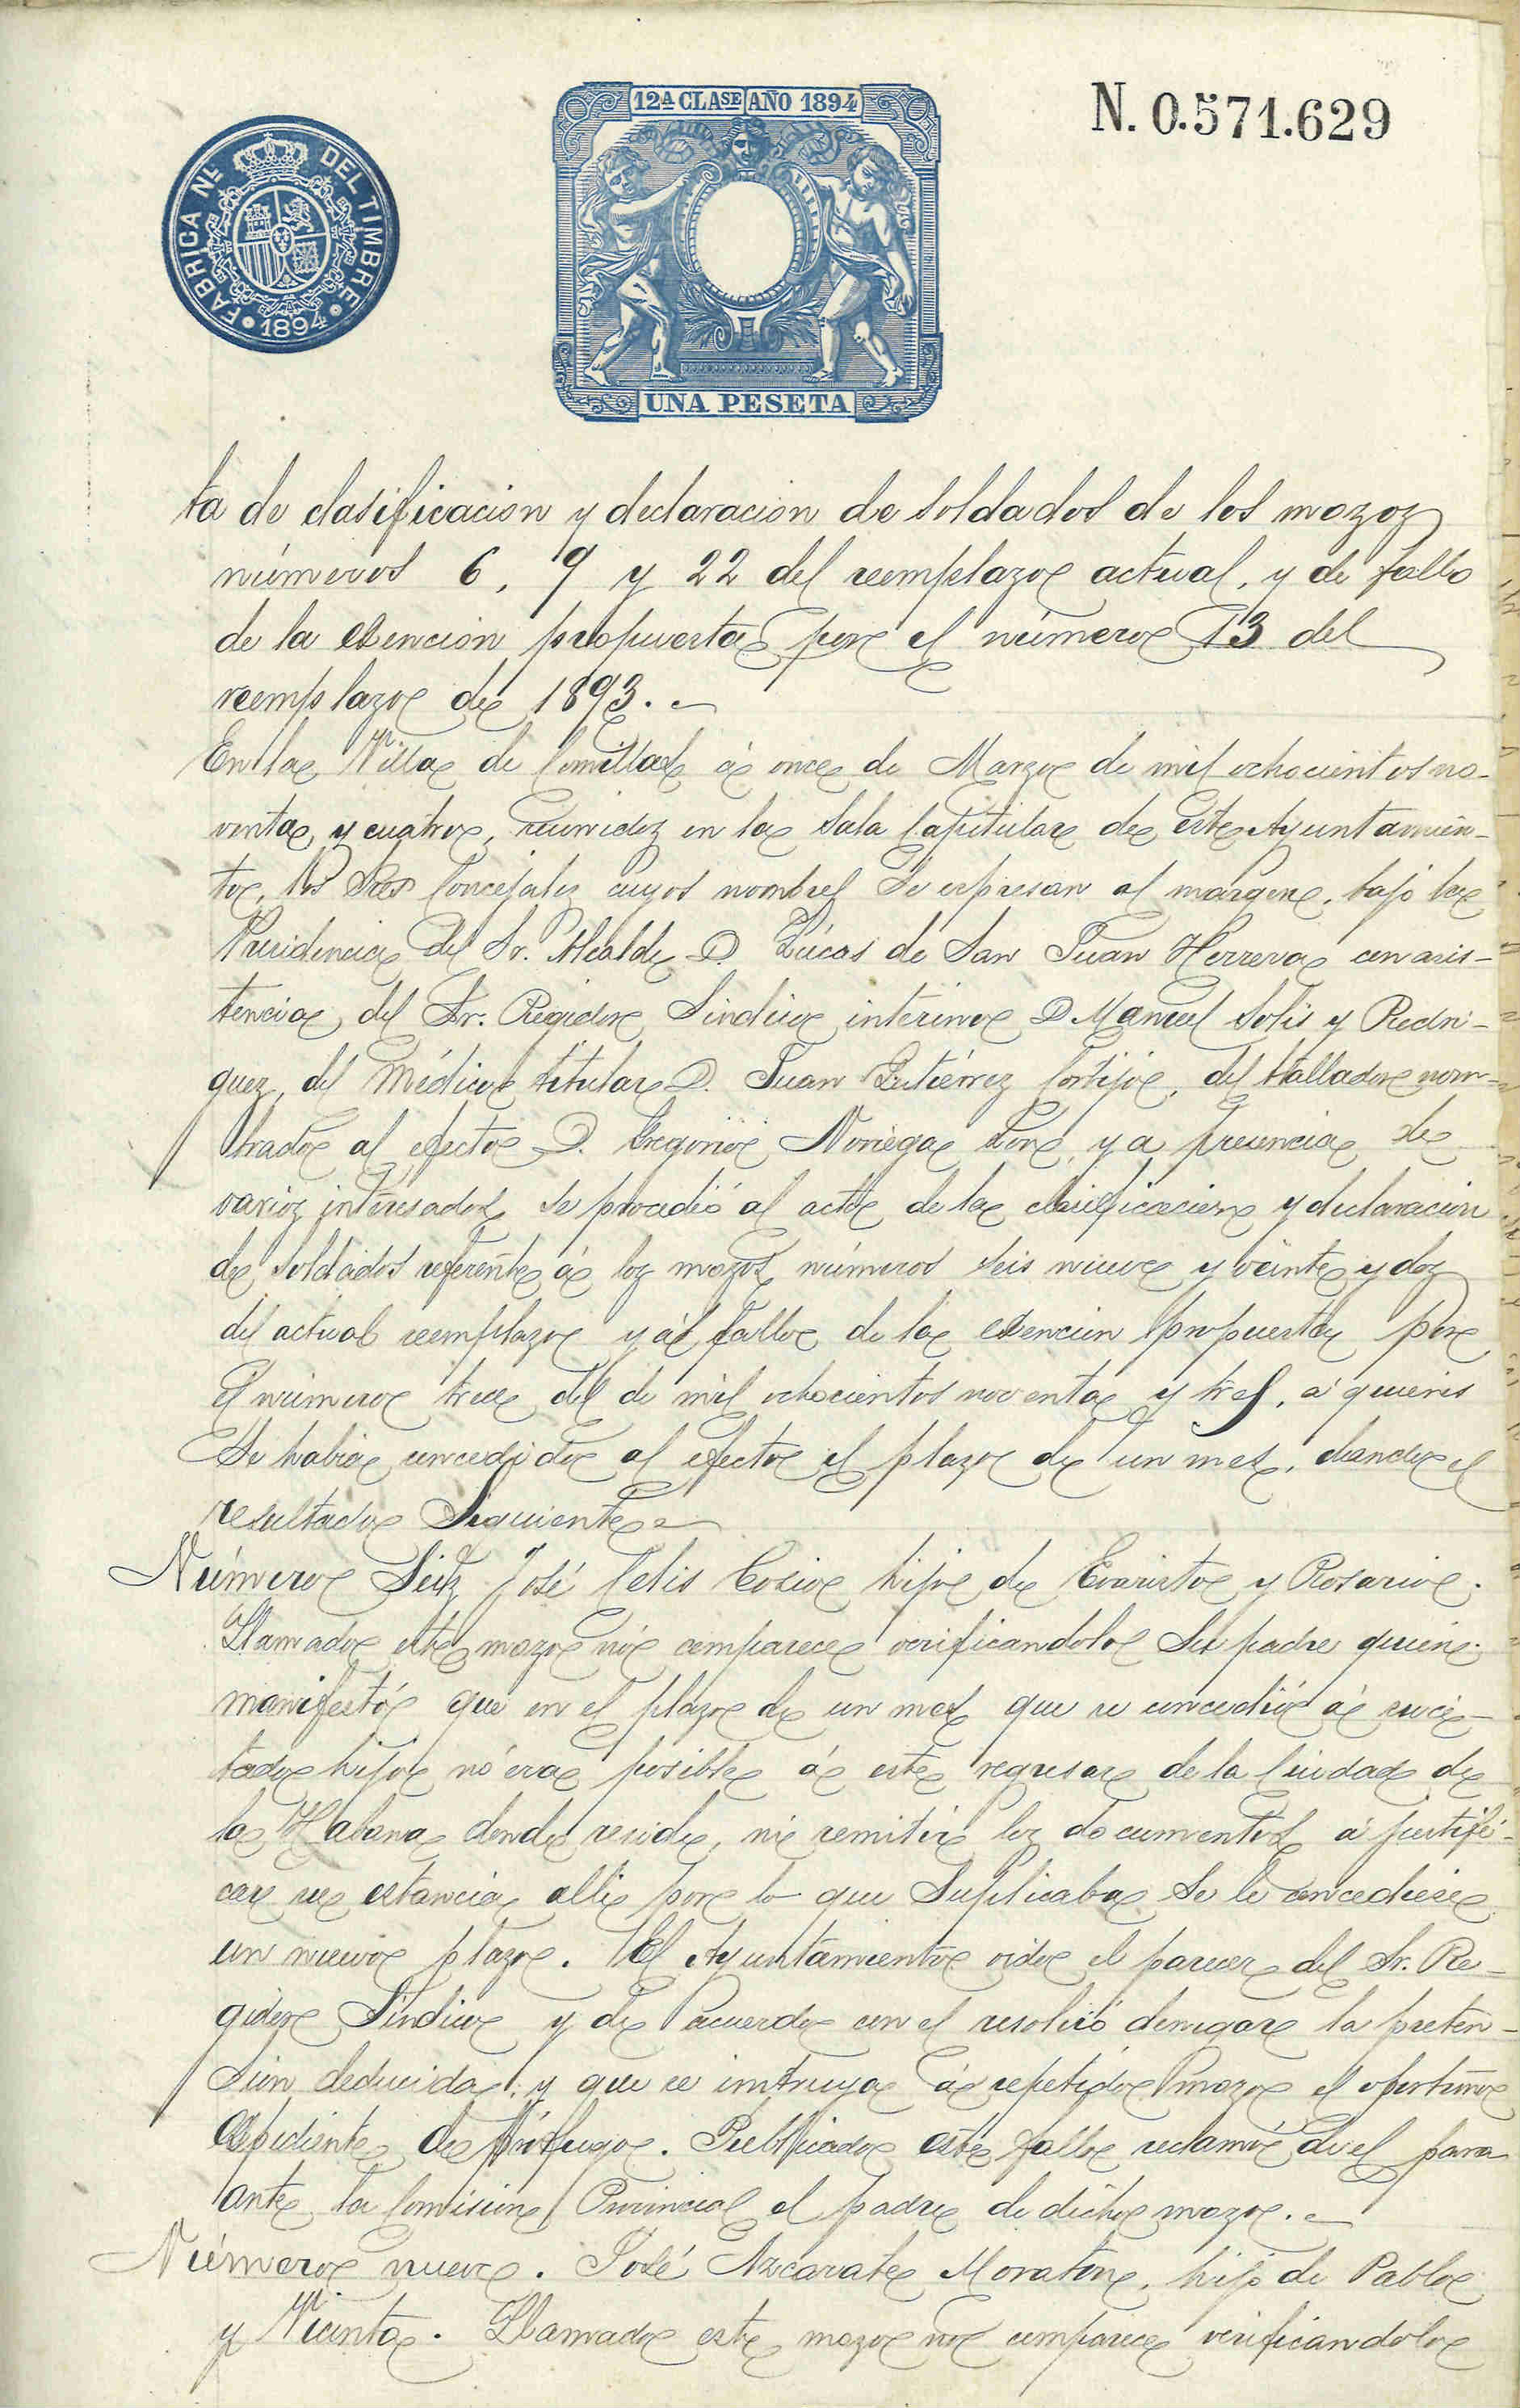 FABRICA Nᴸ DEL TIMBRE
1894
12ª CLASE AÑO 1894
UNA PESETA
N. 0.571.629
ta de clasificacion y declaracion de soldados de los mozos
números 6, 9 y 22 del reemplazo actual, y de fallo
de la esencion propuesta por el número 13 del
reemplazo de 1893.
En la Villa de Comillas á once de Marzo de mil ochocientos no-
venta y cuatro, reunidos en la Sala Capitular de este Ayuntamien-
to, los Sres Concejales cuyos nombres se espresan al margen, bajo la
Presidencia del Sr. Alcalde D. Lúcas de San Juan Herrera con asis-
tencia del Sr. Regidor Sindico interino D Manuel Solis y Rodri-
guez, del Médico titular D. Juan Gutiérrez Cortijo, del tallador nom-
brado al efecto D. Gregorio Noriega y a presencia de
varios interesados se procedió al acto de la clasificacion y declaracion
de soldados referente á los mozos números seis nueve y veinte y dos
del actual reemplazo y al fallo de la esencion propuesta por
el número trece del de mil ochocientos noventa y tres, á quienes
se habia concedido al efecto el plazo de un mes, dando el
resultado siguiente
Número Seis José Celis Cosio hijo de Evaristo y Rosario.
Llamado este mozo nó comparece verificandolo su padre quien
manifestó que en el plazo de un mes que se concedió á su ci-
tado hijo nó era posible á este regresar de la Ciudad de
la Habana donde reside, ni remitir los documentos á justifi-
car su estancia alli por lo que suplicaba se le concediese
un nuevo plazo. El Ayuntamiento oido el parecer del Sr. Re-
gidor Sindico y de acuerdo con el resolvió denegar la preten-
sion deducida, y que se instruya á repetido mozo el oportuno
espediente de prófugo. Publicado este fallo reclamó de el para
ante la Comision Provincial el padre de dicho mozo.
Número nueve. José Azcarate Moraton, hijo de Pablo
y Vicenta. Llamado este mozo no comparece verificandolo